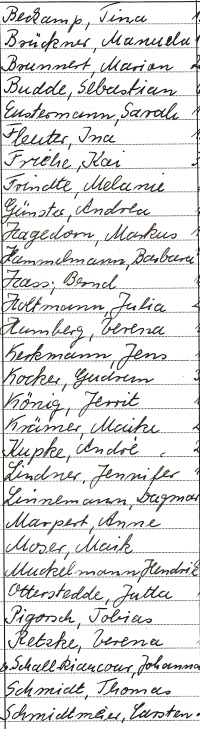 Beckamp, Tina 1
Brückner, Manuela 1
Brunnert, Marion 2
Budde, Sebastian
Eustermann, Sarah 1
Fleuter, Ina 1
Friehe, Kai 3
Frindte, Melanie
Günsta, Andrea
Hagedorn, Markus 1
Hammelmann, Barbara
Hass, Bernd
Holtmann, Julia
Humberg, Verena
Kerkmann, Jens
Kocker, Gudrun
König, Jerrit
Krämer, Maike 2
Kupke, André 2
Lindner, Jennifer 1
Linnemann, Dagmar
Marpert, Anne
Moser, Maik
Muckelmann, Hendrik
Otterstedde, Jutta 1
Pigorsch, Tobias
Retzke, Verena 1
Johanna
Schmidt, Thomas
Schmidtmeier, Carsten